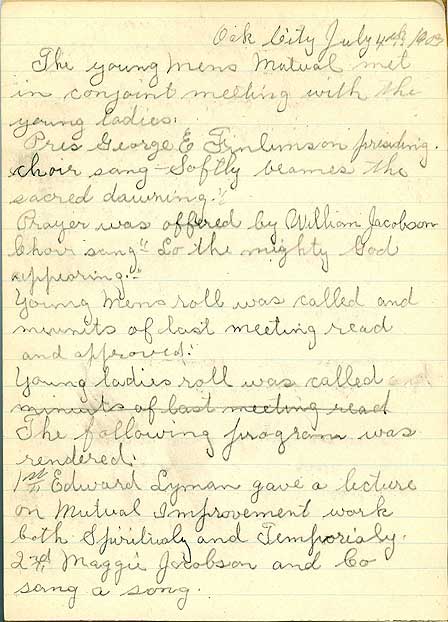 Oak City July 4th, 1903
The young mens Mutual met
in conjoint meeting with the
young ladies.
Pres George E Finlinson presiding.
choir sang "Softly beames the
sacred dawning."
Prayer was offered by William Jacobson
Choir sang "Lo the mighty God
appearing."
Young mens roll was called and
minuits of last meeting read
and approved.
Young ladies roll was called and
minuits of last meeting read
The following program was
rendered:
1st Edward Lyman gave a lecture
on Mutual Improvement work
both Spiritualy and Temporialy.
2nd Maggie Jacobson and Co
sang a song.